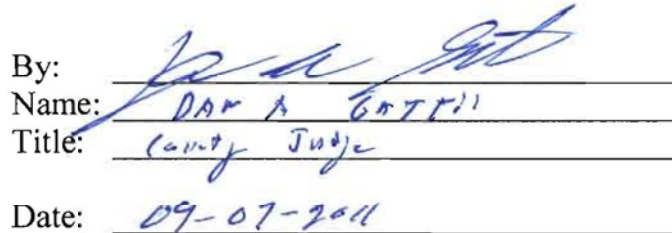 By:
Name: DAN A GATTIS
Title: County Judge
Date: 09-07-2011